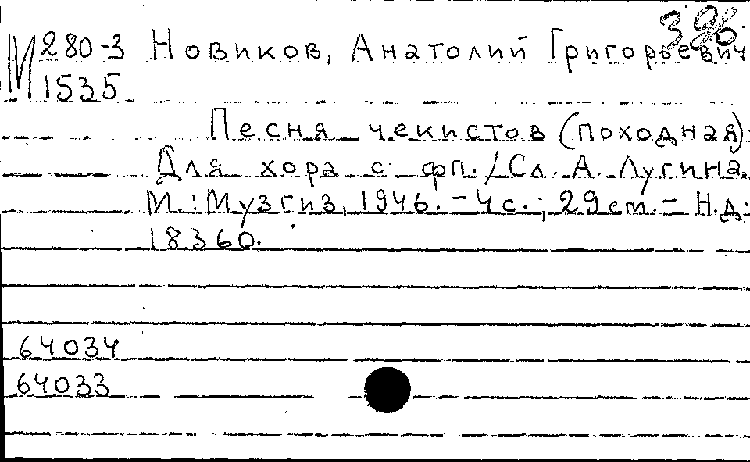 396
М 280-3 Новиков, Анатолий Григорьевич
1535
Песня чекистов (походная):
Для хора с фп. / Сл. А. Лугина.
М.: Музгиз, 1946. - 4 с.; 29 см. - Н.д.
18360.
64034
64033